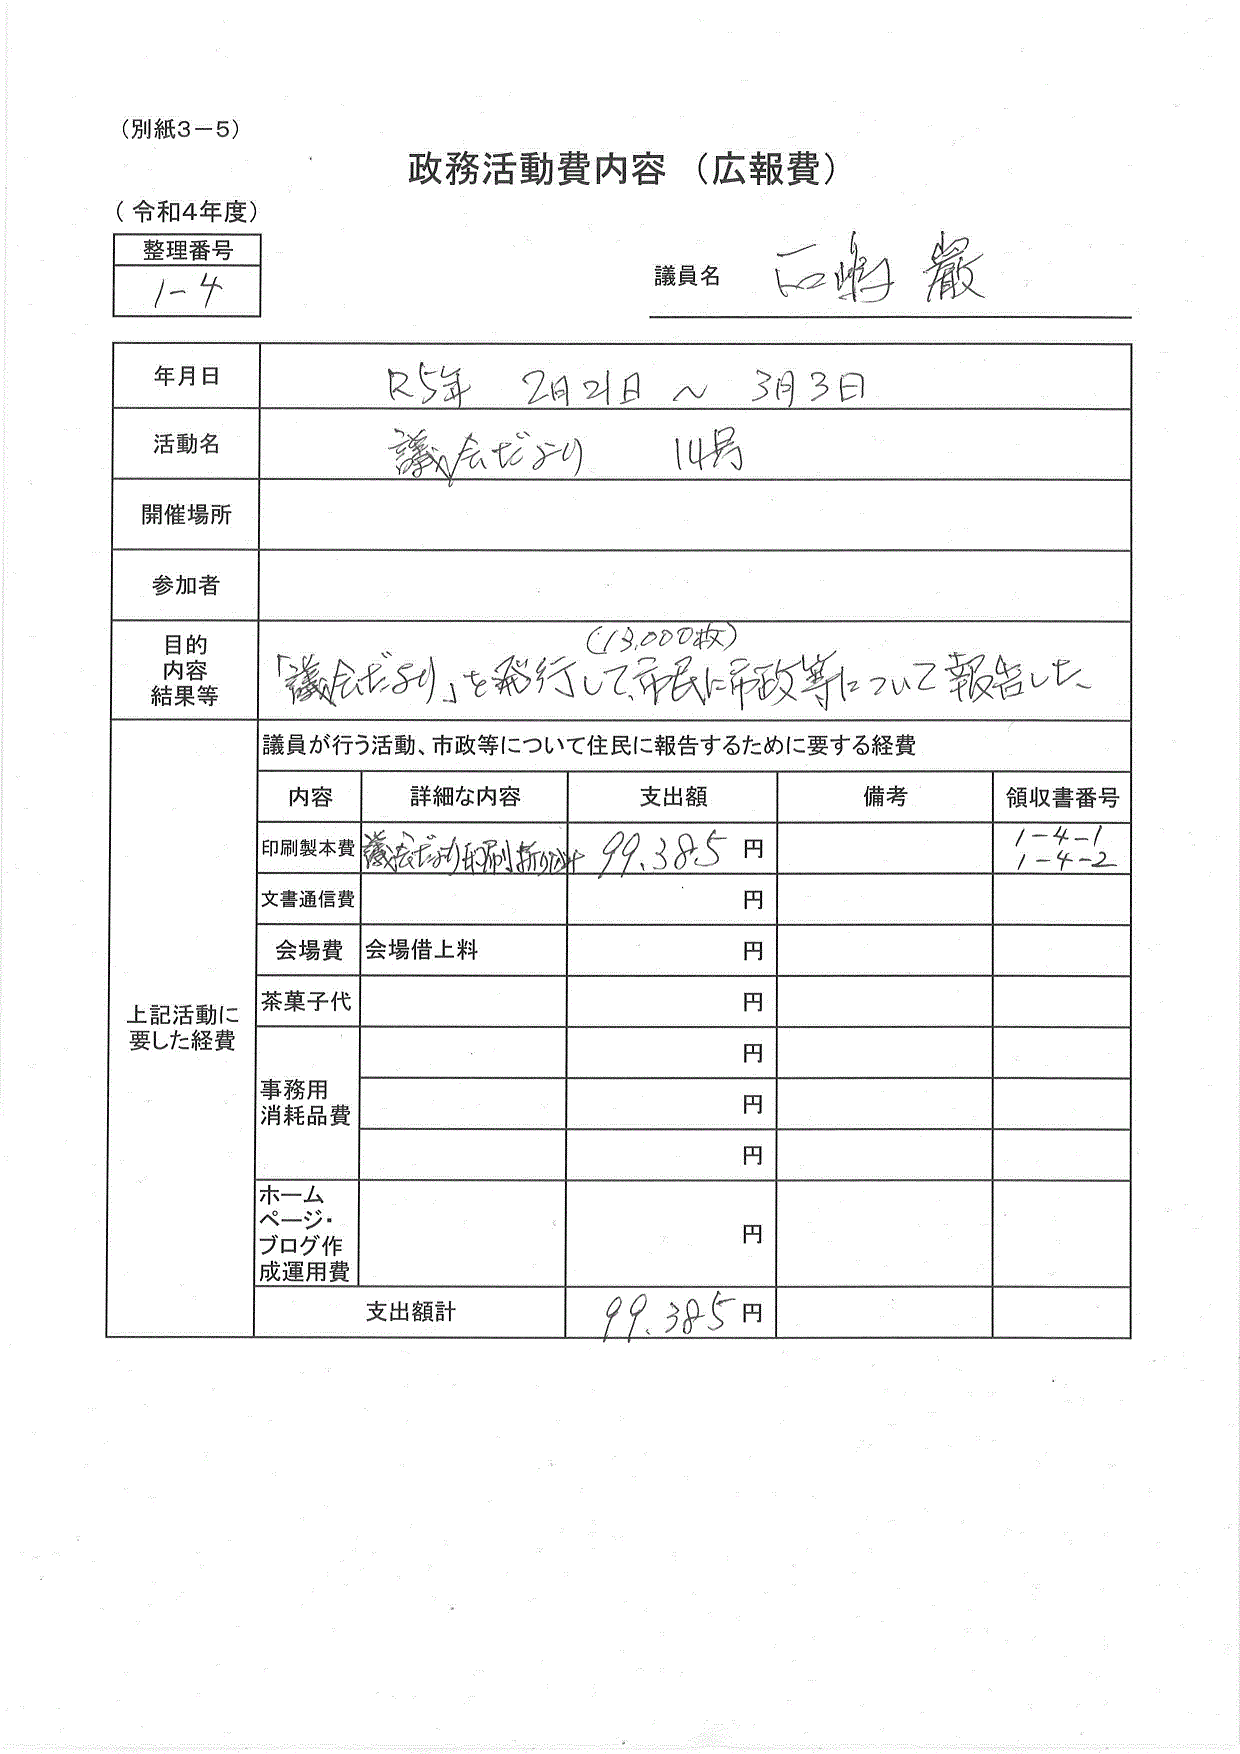 （別紙３－５）
政務活動費内容 （広報費）
（ 令和４年度）
整理番号
1-4
議員名 石嶋 巌
年月日 R5年 2月21日 〜 3月3日
活動名 議会だより 14号
開催場所
参加者
(13,000枚)
目的
内容
結果等
「議会だより」を発行して、市民に市政等について報告した、
議員が行う活動、市政等について住民に報告するために要する経費
内容 詳細な内容 支出額 備考 領収書番号
印刷製本費 議会だより印刷 折り 99.385 円 1-4-1
1-4-2
文書通信費 円
会場費 会場借上料 円
茶菓子代 円
上記活動に
要した経費
事務用
消耗品費
円
円
円
ホーム
ページ・
ブログ作
成運用費
円
支出額計 99.385 円